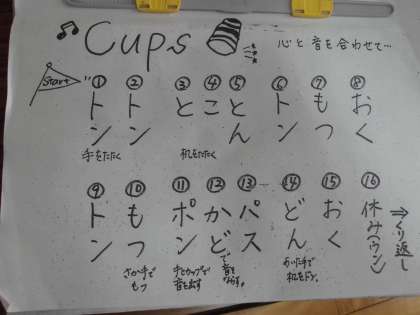 Cups
心と音を合わせて…
Start
① ② ③ ④ ⑤ ⑥ ⑦ ⑧
トン トン と こ とん トン もつ おく
手をたたく 机をたたく
⑨ ⑩ ⑪ ⑫ ⑬ ⑭ ⑮ ⑯
トン もつ ポン かど パス どん おく 休み(ウン)
⇒くり返し
さか手でもつ
手とカップで音を出す
で音をならす。
あいた手で机をドン。